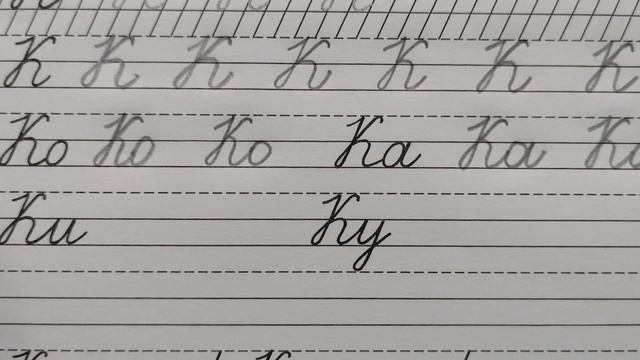 К К К К К К К
Ко Ко Ко Ка Ка
Ки Ку